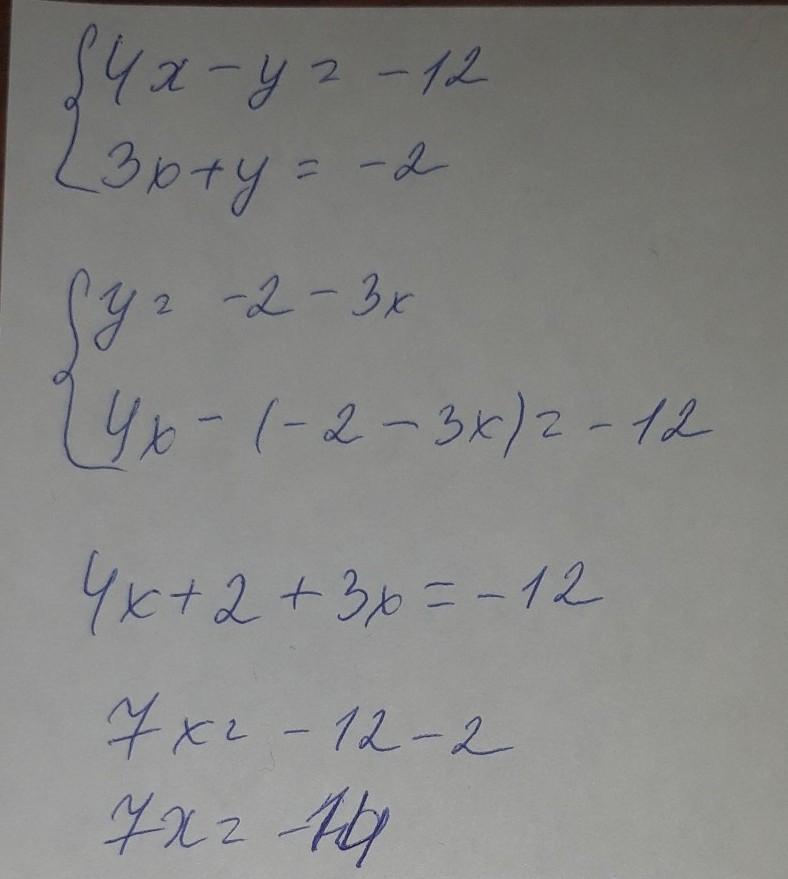 4x - y = -12
3x + y = -2
y = -2 - 3x
4x - (-2 - 3x) = -12
4x + 2 + 3x = -12
7x = -12 - 2
7x = -14